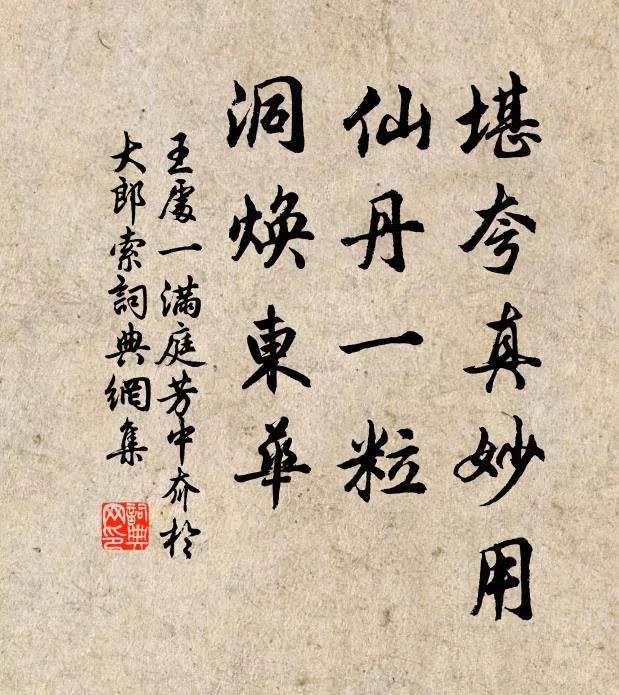 堪夸真妙用
仙丹一粒
洞焕東華
王處一滿庭芳中夼於
大郎索詞典網集
詞典
网印